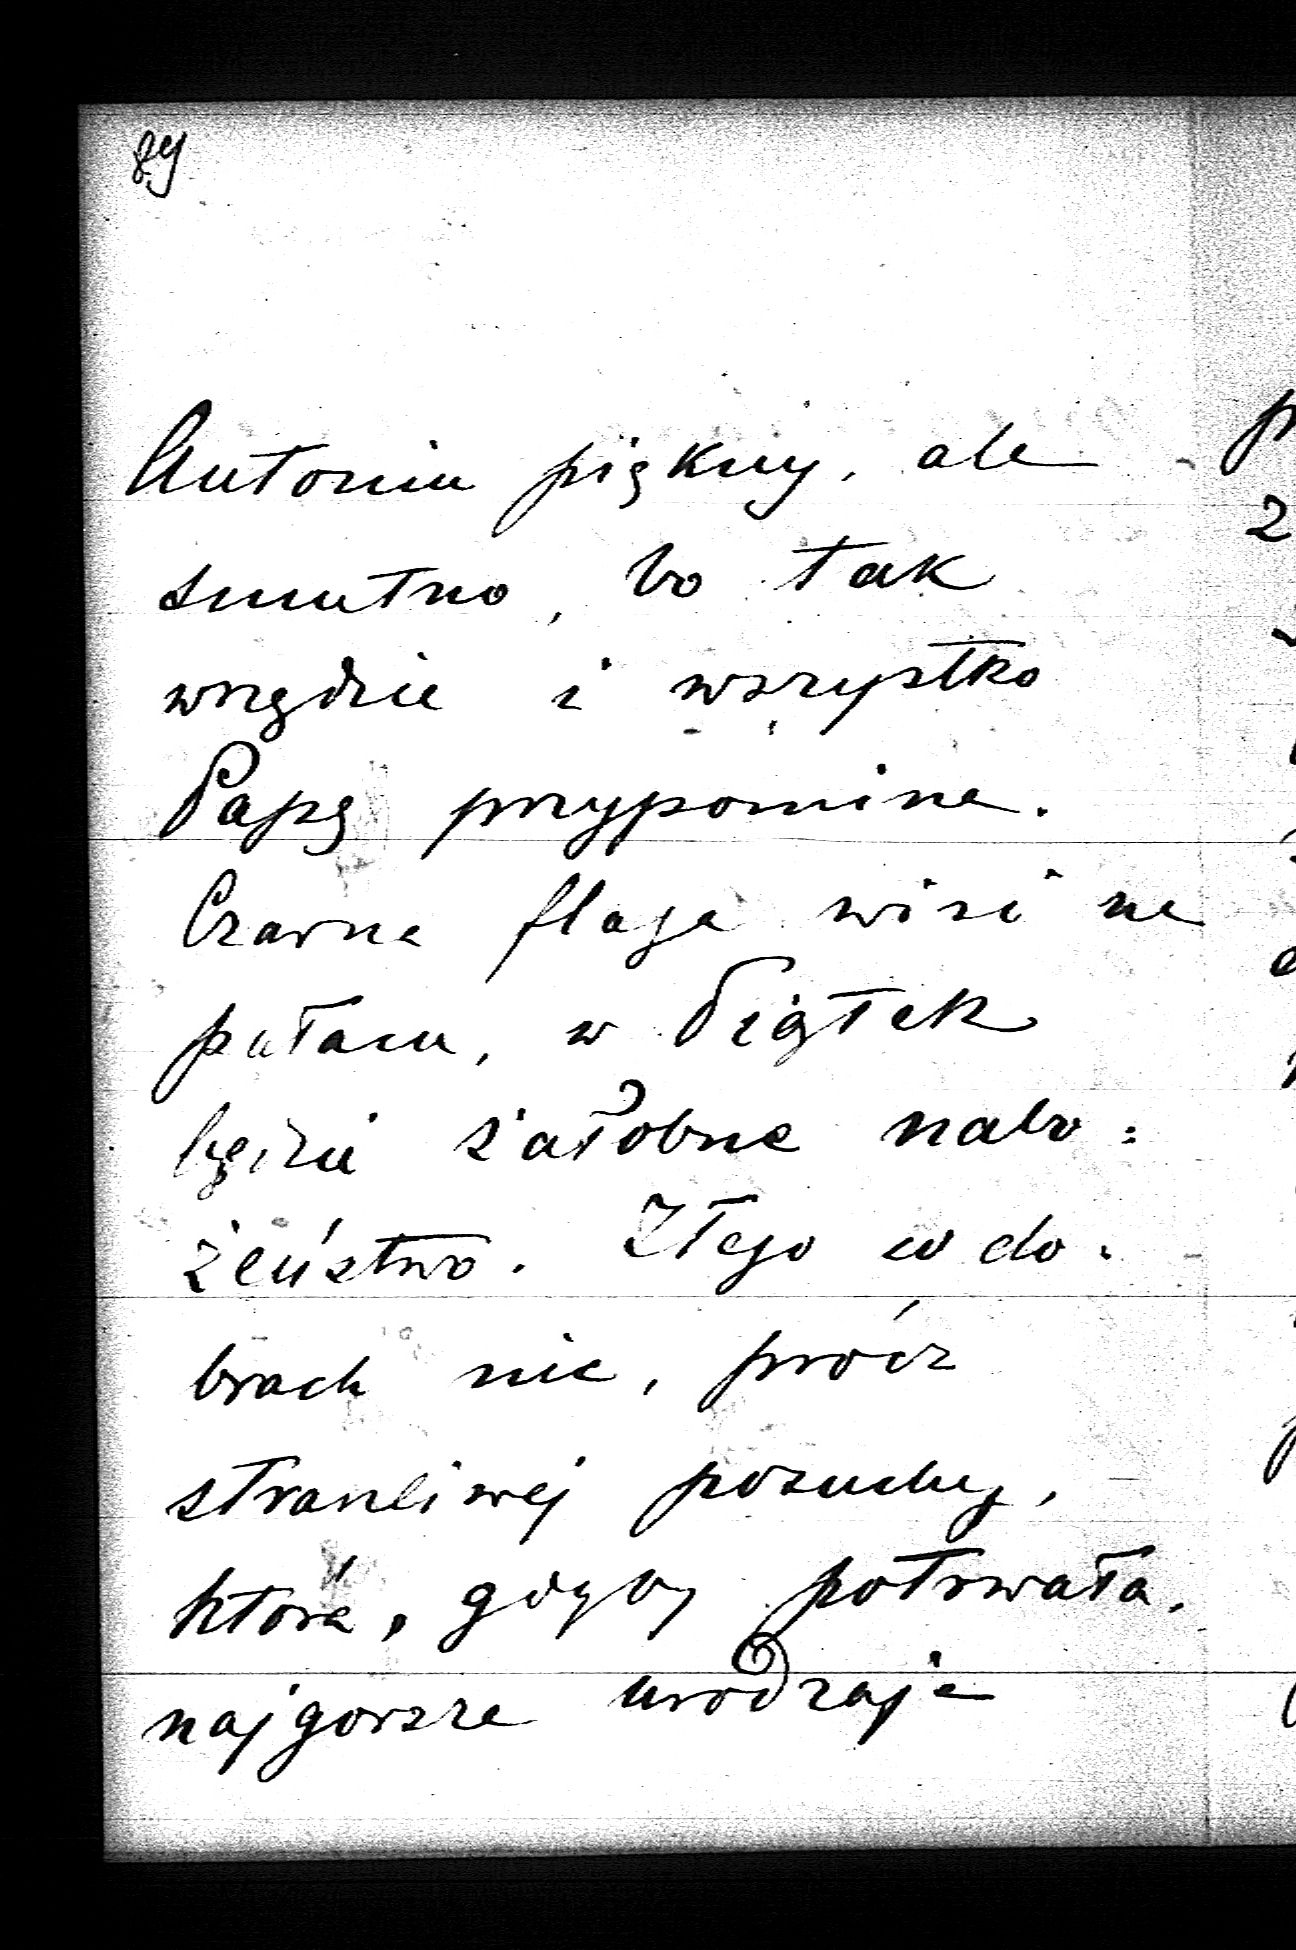 89
Antonin piękny, ale
smutno, bo tak
wszędzie i wszystko
Papę przypomina.
Czarna flaga wisi na
pałacu, w Piątek
będzie żałobne nabo:
żeństwo. Złego w do:
brach nic, prócz
straszliwej posuchy,
która, gdyby potrwała,
najgorsze urodzaje